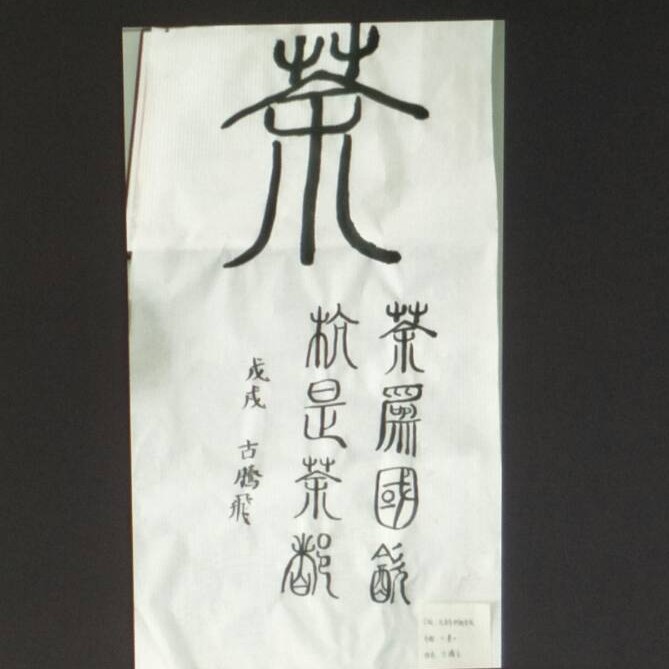 茶
茶為國飲
杭是茶都
戊戌 古騰飛